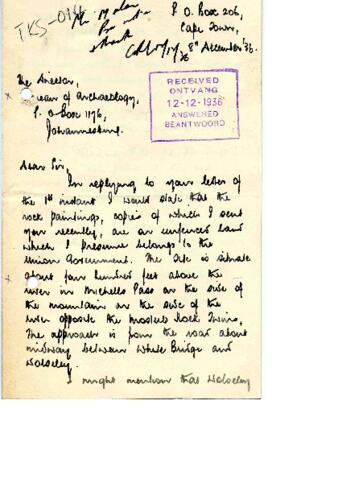 TKS-014
P O Box 206,
Cape Town,
8th December '36.
RECEIVED
ONTVANG
12-12-1936
ANSWERED
BEANTWOORD
The Director,
Bureau of Archaeology,
P. O Box 1176,
Johannesburg.
Dear Sir,
In replying to your letter of
the 1st instant I would state that the
rock paintings, copies of which I sent
you recently, are on unfenced land
which I presume belongs to the
Union Government. The site is situate
about four hundred feet above the
river in Michells Pass on the side of
the mountain on the side of the
river opposite the Rock Twins,
The approach is from the road about
midway between White Bridge and
Wolseley.
I might mention that Wolseley